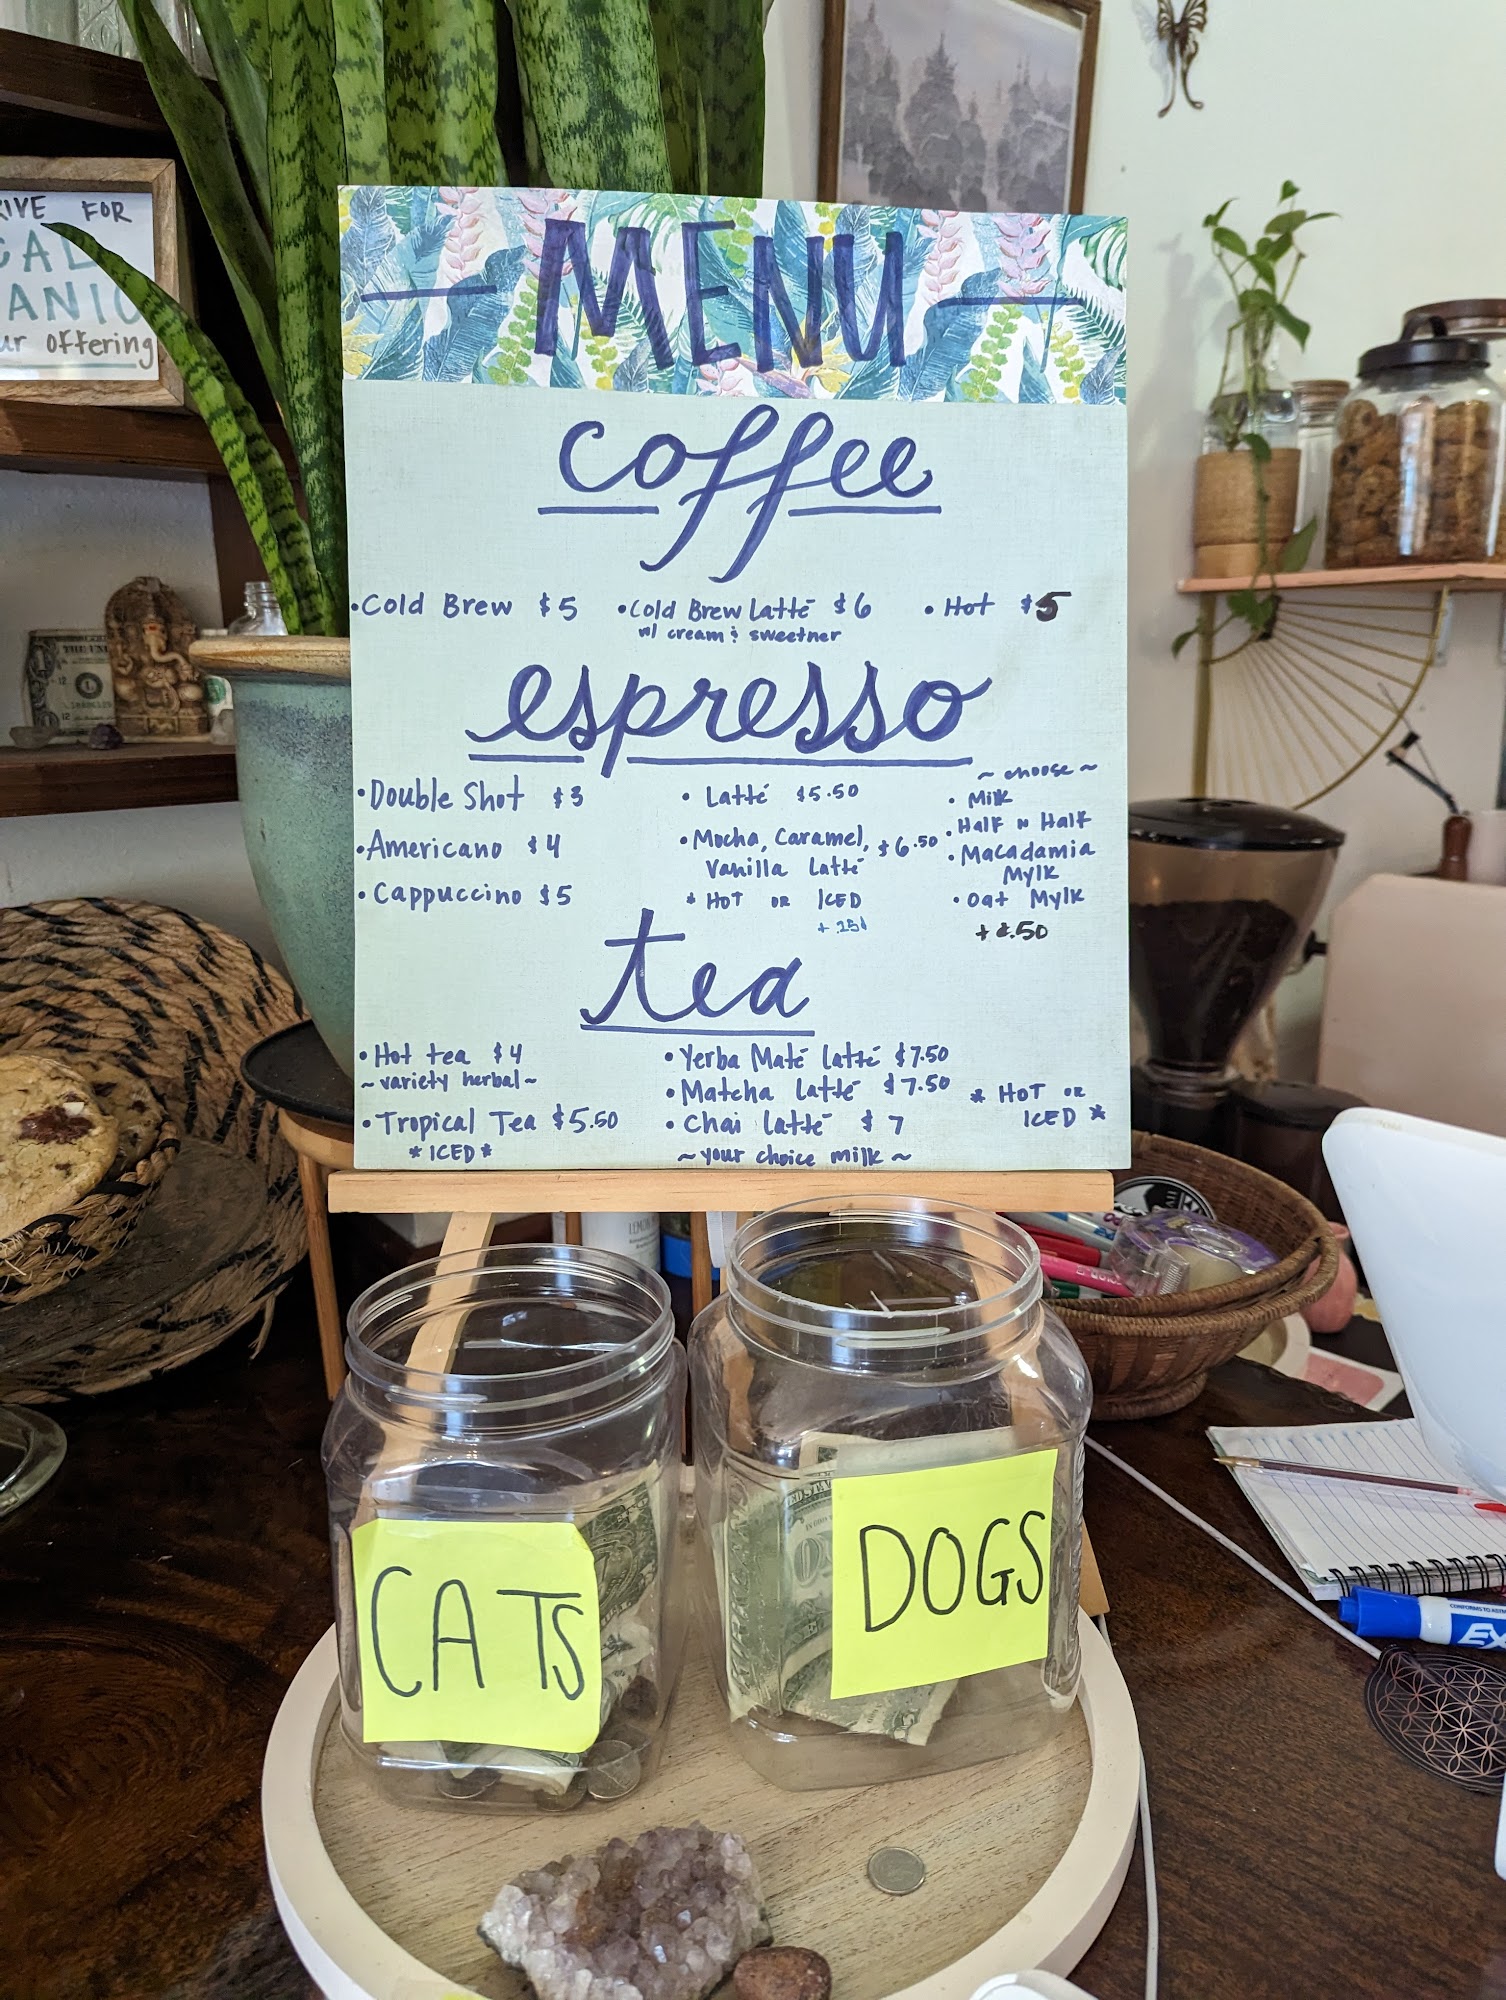 FOR
ANIC
offering
MENU
coffee
• Cold Brew $5
• Cold Brew Latté $6
w/ cream & sweetner
• Hot $5
espresso
• Double Shot $3
• Americano $4
• Cappuccino $5
• Latté $5.50
• Mocha, Caramel, $6.50
Vanilla Latté
* HOT OR ICED
~ choose ~
• Milk
• Half N Half
• Macadamia
Mylk
• Oat Mylk
tea
• Hot tea $4
~ variety herbal ~
• Tropical Tea $5.50
* ICED *
• Yerba Maté latté $7.50
• Matcha latté $7.50
• Chai latté $7
~ your choice milk ~
* HOT OR
ICED *
CATS
DOGS